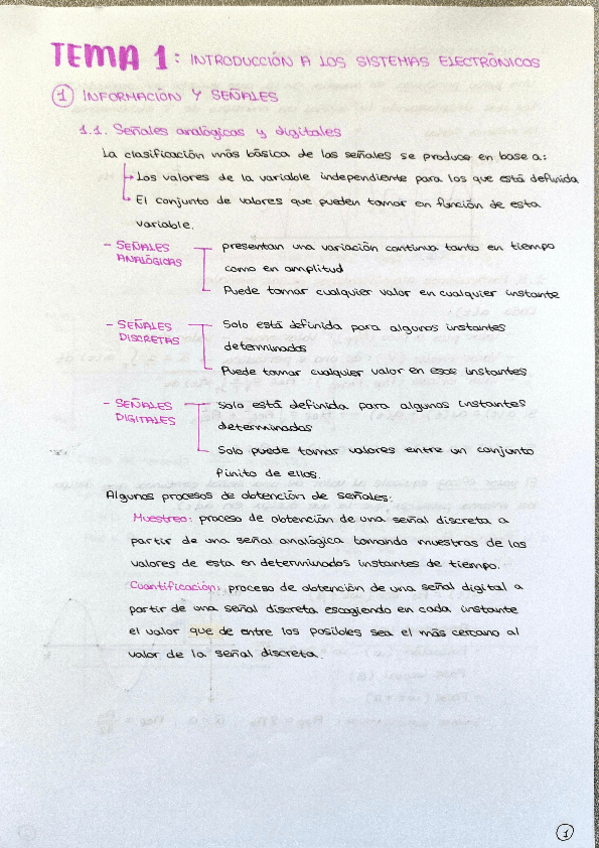 TEMA 1: INTRODUCCIÓN A LOS SISTEMAS ELECTRÓNICOS
① INFORMACIÓN Y SEÑALES
1.1. Señales analógicas y digitales
La clasificación más básica de las señales se produce en base a:
Los valores de la variable independiente para los que está definida
El conjunto de valores que pueden tomar en función de esta
variable.
- SEÑALES ANALÓGICAS
presentan una variación continua tanto en tiempo
como en amplitud
Puede tomar cualquier valor en cualquier instante
- SEÑALES DISCRETAS
Solo está definida para algunos instantes
determinados
Puede tomar cualquier valor en esos instantes
- SEÑALES DIGITALES
solo está definida para algunos instantes
determinados
Solo puede tomar valores entre un conjunto
finito de ellos.
Algunos procesos de obtención de señales:
Muestreo: proceso de obtención de una señal discreta a
partir de una señal analógica tomando muestras de los
valores de esta en determinados instantes de tiempo.
Cuantificación: proceso de obtención de una señal digital a
partir de una señal discreta escogiendo en cada instante
el valor que de entre los posibles sea el más cercano al
valor de la señal discreta.
1